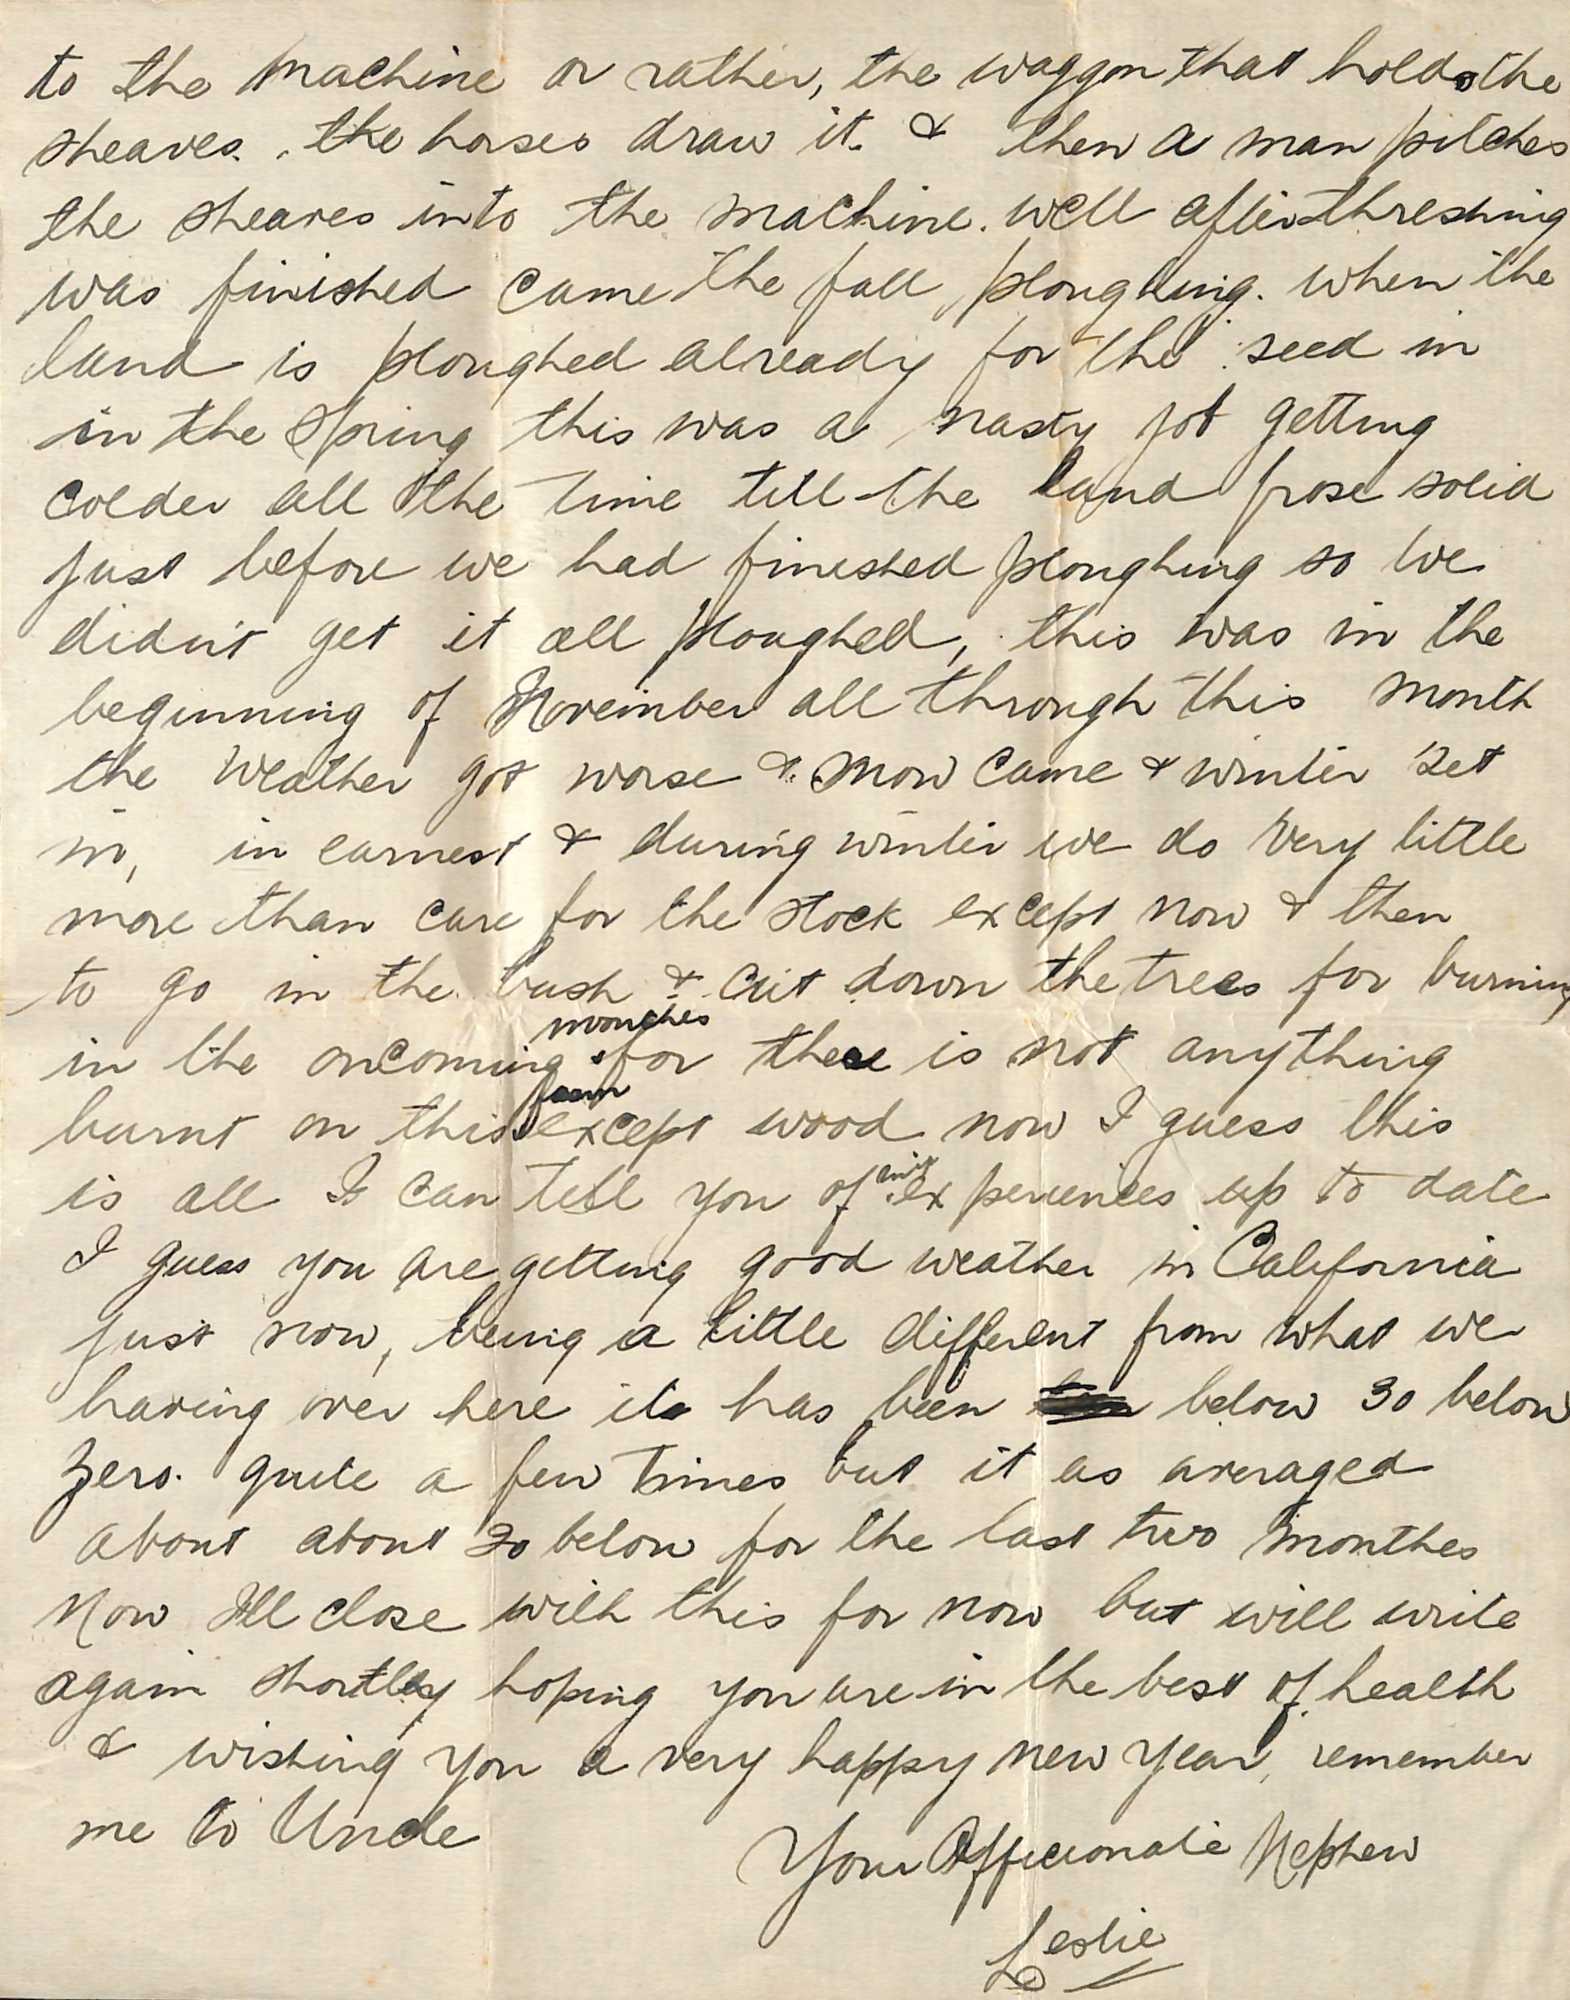 to the machine or rather, the waggon that holds the
sheaves. the horses draw it. & then a man pitches
the sheaves into the machine. well after threshing
was finished came the fall ploughing. when the
land is ploughed already for the seed in
in the spring this was a nasty job getting
colder all the time till the land frose solid
just before we had finished ploughing so we
didn't get it all ploughed, this was in the
beginning of November all through this month
the weather got worse & snow came & winter set
in, in earnest & during winter we do very little
more than care for the stock except now & then
to go in the bush & cut down the trees for burning
monthes
in the oncoming for there is not anything
farm
burnt on this except wood now I guess this
my
is all I can tell you of experiences up to date
I guess you are getting good weather in California
just now, being a little different from what we
having over here it has been below 30 below
zero. quite a few times but it as averaged
about about 20 below for the last two monthes
Now I'll close with this for now but will write
again shortley hoping you are in the best of health
& wishing you a very happy new year, remember
me to Uncle
Your Afficionate Nephew
Leslie